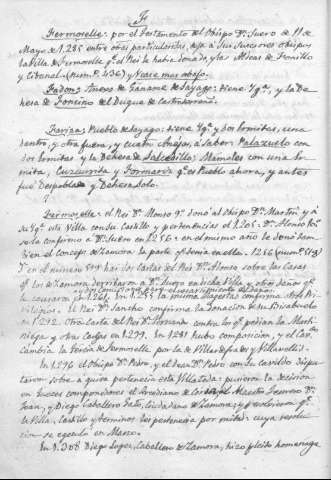 F
Fermoselle: por el testamento del Obispo Dn. Suero de 11 de
Mayo de 1285 entre otras particularidades, deja a sus sucesores obispos
la Villa de Fermoselle qe. el Rei le habia donado, y las Aldeas de Fornillo
y Cibanal. (num. P. 436) y Vease mas abajo.
Fadon: Anexo de Ganame de Sayago: tiene Yga. y la De
hesa de Foncino del Duque de
Fariza: Pueblo de Sayago: tiene Yga. y dos hermitas, una
dentro, y otra fuera, y cuatro Anejos, à saber: Palazuelo con
dos hermitas y la Dehesa de Salcedillo; Mamoles con una hr
mita, Cuzcurrita y Formariz qe. es Pueblo ahora, y antes
fue Despoblado y Dehesa solo.
Fermoselle: el Rei Dn. Alonso 9o. donó al Obispo Dn. Martin y à
su Yga. esta Villa con su Castillo y pertenencias el 1205. Dn. Alonso
se la confirmo a Dn. Suero en 1256: en el mismo año le donó tam
bien el concejo de Zamora la parte qe. tenia en ella. 1256
Y en el numero hai dos Cartas del Rei Dn. Alonso sobre las casas
qe. los de Zamora derribaron a Dn. Suero en dicha Villa y otros daños qe.
le causaron en 1261. En 1255 la misma Magestad confirma
El Rei Dn. Sancho confirma la Donacion de su
en 1292. Otra Carta del Rei Dn. Fernando contra los qe. pedian la Mart
niega y otras cargas en 1299. En 1291 hubo composicion, y el
cambia la tercia de Fermoselle, por la de Villa de frades y Villanueva
En 1296 el Obispo Dn. Pedro, y el Dean Dn. Pedro con su Cavildo dispu
taron sobre a quien pertenecia esta Villa toda: pusieron la decision
en Jueces componedores el Arcediano de Maestro Dn.
Juan, y Diego Caballero Ciudadano de Zamora; y resolvieron qe.
la Villa, Castillo y terminos les pertenecia por mitad: cuya resolu
cion se egecutó en Marzo.
En 1308 Diego Lopez, Caballero de Zamora, hizo pleito homenage